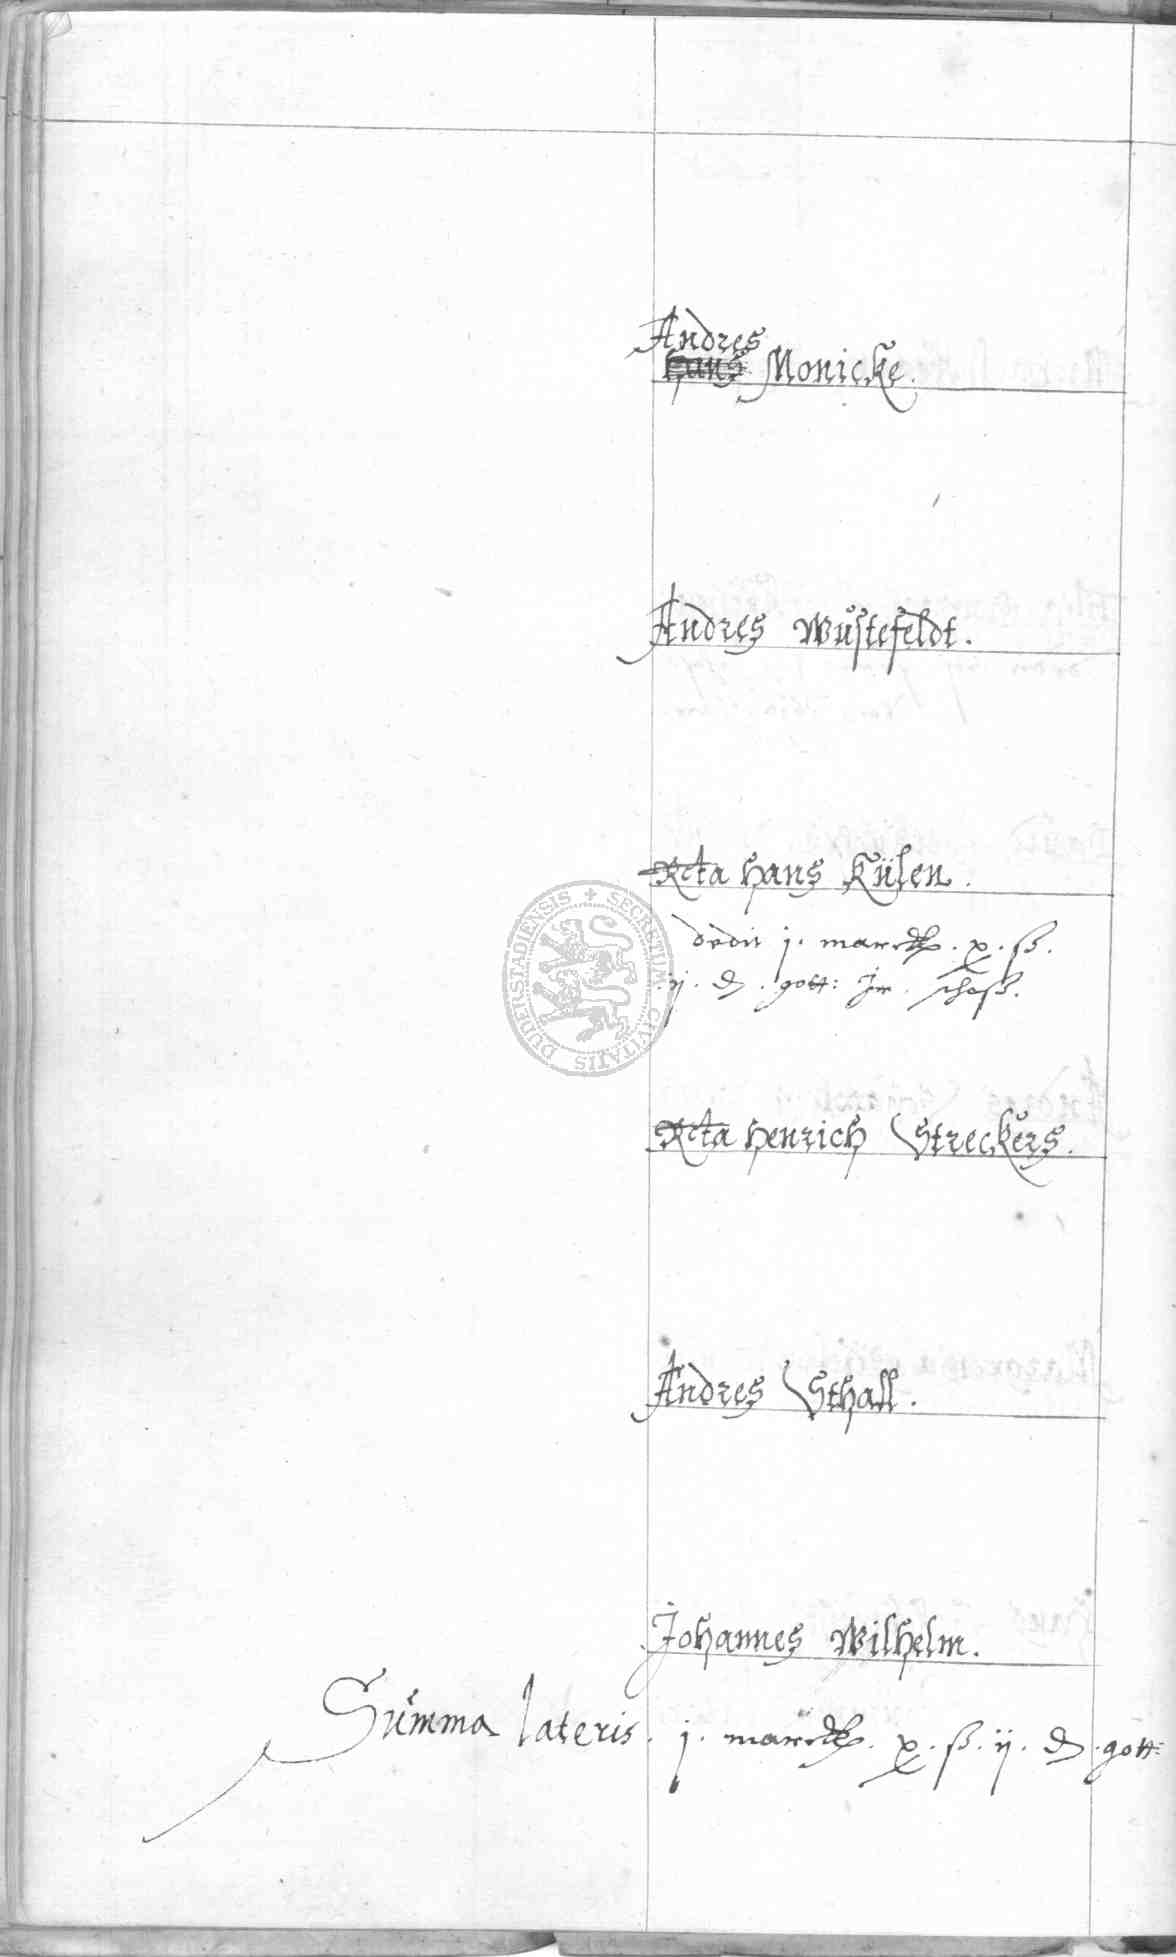 Andres
Hans Monicke.
Andres Wustefeldt.
Rcta Hans Külen.
dedit j. marck. x. ß.
ij. d. gott: Im. schoß.
SECRETUM CIVITATIS DUDERSTADIENSIS
Rcta Henrich Streckers.
Andres Sthall.
Johannes Wilhelm.
Summa lateris. j. marck. x. ß. ij. d. gott: